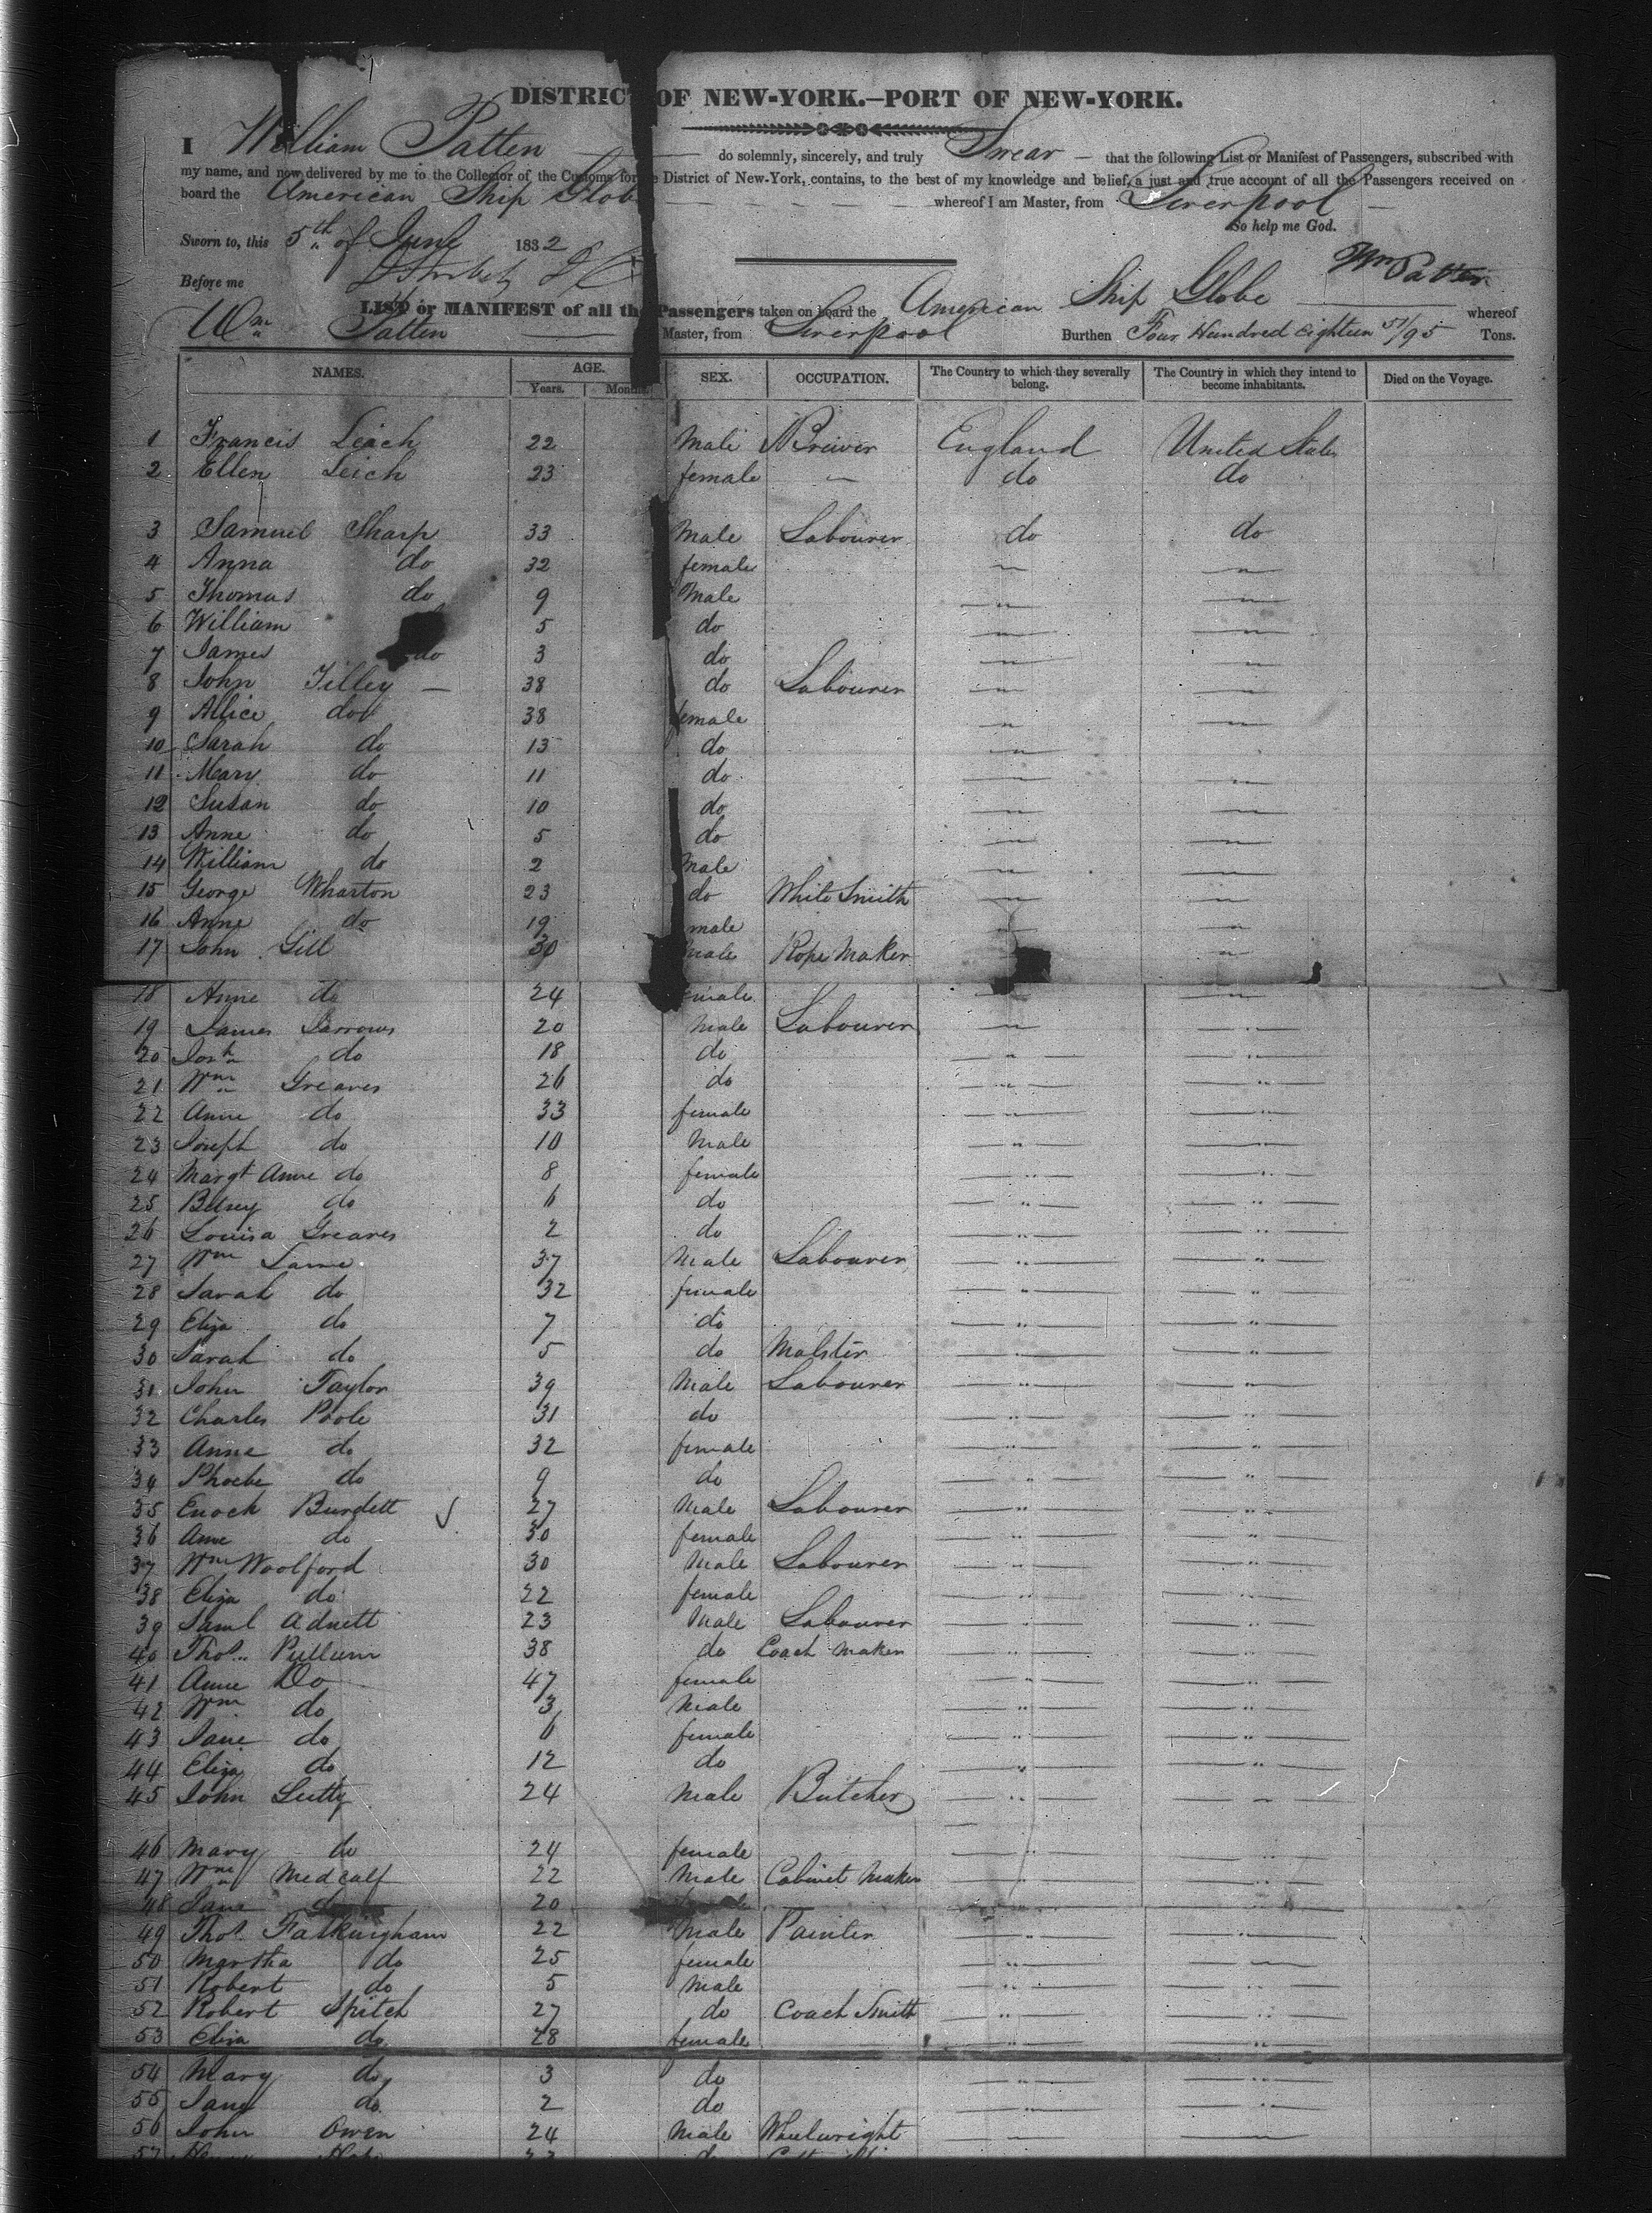 DISTRICT OF NEW-YORK.—PORT OF NEW-YORK.
I William Patten do solemnly, sincerely, and truly Swear — that the following List or Manifest of Passengers, subscribed with
my name, and now delivered by me to the Collector of the Customs for the District of New-York, contains, to the best of my knowledge and belief, a just and true account of all the Passengers received on
board the American Ship Globe whereof I am Master, from Liverpool —
So help me God.
Sworn to, this 5th of June 1832
Wm Patten
Before me
LIST or MANIFEST of all the Passengers taken on board the American Ship Globe whereof
Wm Patten Master, from Liverpool Burthen Four Hundred Eighteen 51/95 Tons.
NAMES. AGE. SEX. OCCUPATION. The Country to which they severally belong. The Country in which they intend to become inhabitants. Died on the Voyage.
Years. Months.
1 Francis Leich 22 Male Brewer England United States
2 Ellen Leich 23 female — do do
3 Samuel Sharp 33 Male Labourer do do
4 Anna do 32 female " "
5 Thomas do 9 Male " "
6 William 5 do " "
7 James do 3 do " "
8 John Tilley — 38 do Labourer " "
9 Allice do 38 female " "
10 Sarah do 13 do " "
11 Mary do 11 do " "
12 Susan do 10 do " "
13 Anne do 5 do " "
14 William do 2 Male " "
15 George Wharton 23 do White Smith " "
16 Anne do 19 male " "
17 John Gill 30 Male Rope Maker "
18 Anne do 24 emale " "
19 James Farrows 20 Male Labourer " "
20 do 18 do " "
21 Wm Greaves 26 do " "
22 Anne do 33 female " "
23 Joseph do 10 Male " "
24 Margt Anne do 8 female " "
25 Betsey do 6 do " "
26 Louisa Greaves 2 do " "
27 Wm 37 Male Labourer " "
28 Sarah do 32 female " "
29 Eliza do 7 do " "
30 Sarah do 5 do Malster " "
31 John Taylor 39 Male Labourer " "
32 Charles Poole 31 do " "
33 Anne do 32 female " "
34 Phoebe do 9 do " "
35 Enoch Burdett 27 Male Labourer " "
36 Anne do 30 female " "
37 Wm Woolford 30 Male Labourer " "
38 Eliza do 22 female " "
39 Saml Adnett 23 Male Labourer " "
40 Thos Pullum 38 do Coach Maker " "
41 Anne Do 47 female " "
42 Wm do 3 Male " "
43 Jane do 6 female " "
44 Eliza do 12 do " "
45 John 24 Male Butcher " "
46 Mary do 24 female " "
47 Wm Medcalf 22 Male Cabinet Maker " "
48 Jane 20 " "
49 Thos Falkingham 22 Male Painter " "
50 Martha do 25 female " "
51 Robert do 5 Male " "
52 Robert Spitch 27 do Coach Smith " "
53 Eliza do 28 female " "
54 Mary do 3 do " "
55 Jane do 2 do " "
56 John Owen 24 Male Wheelwright " "
57